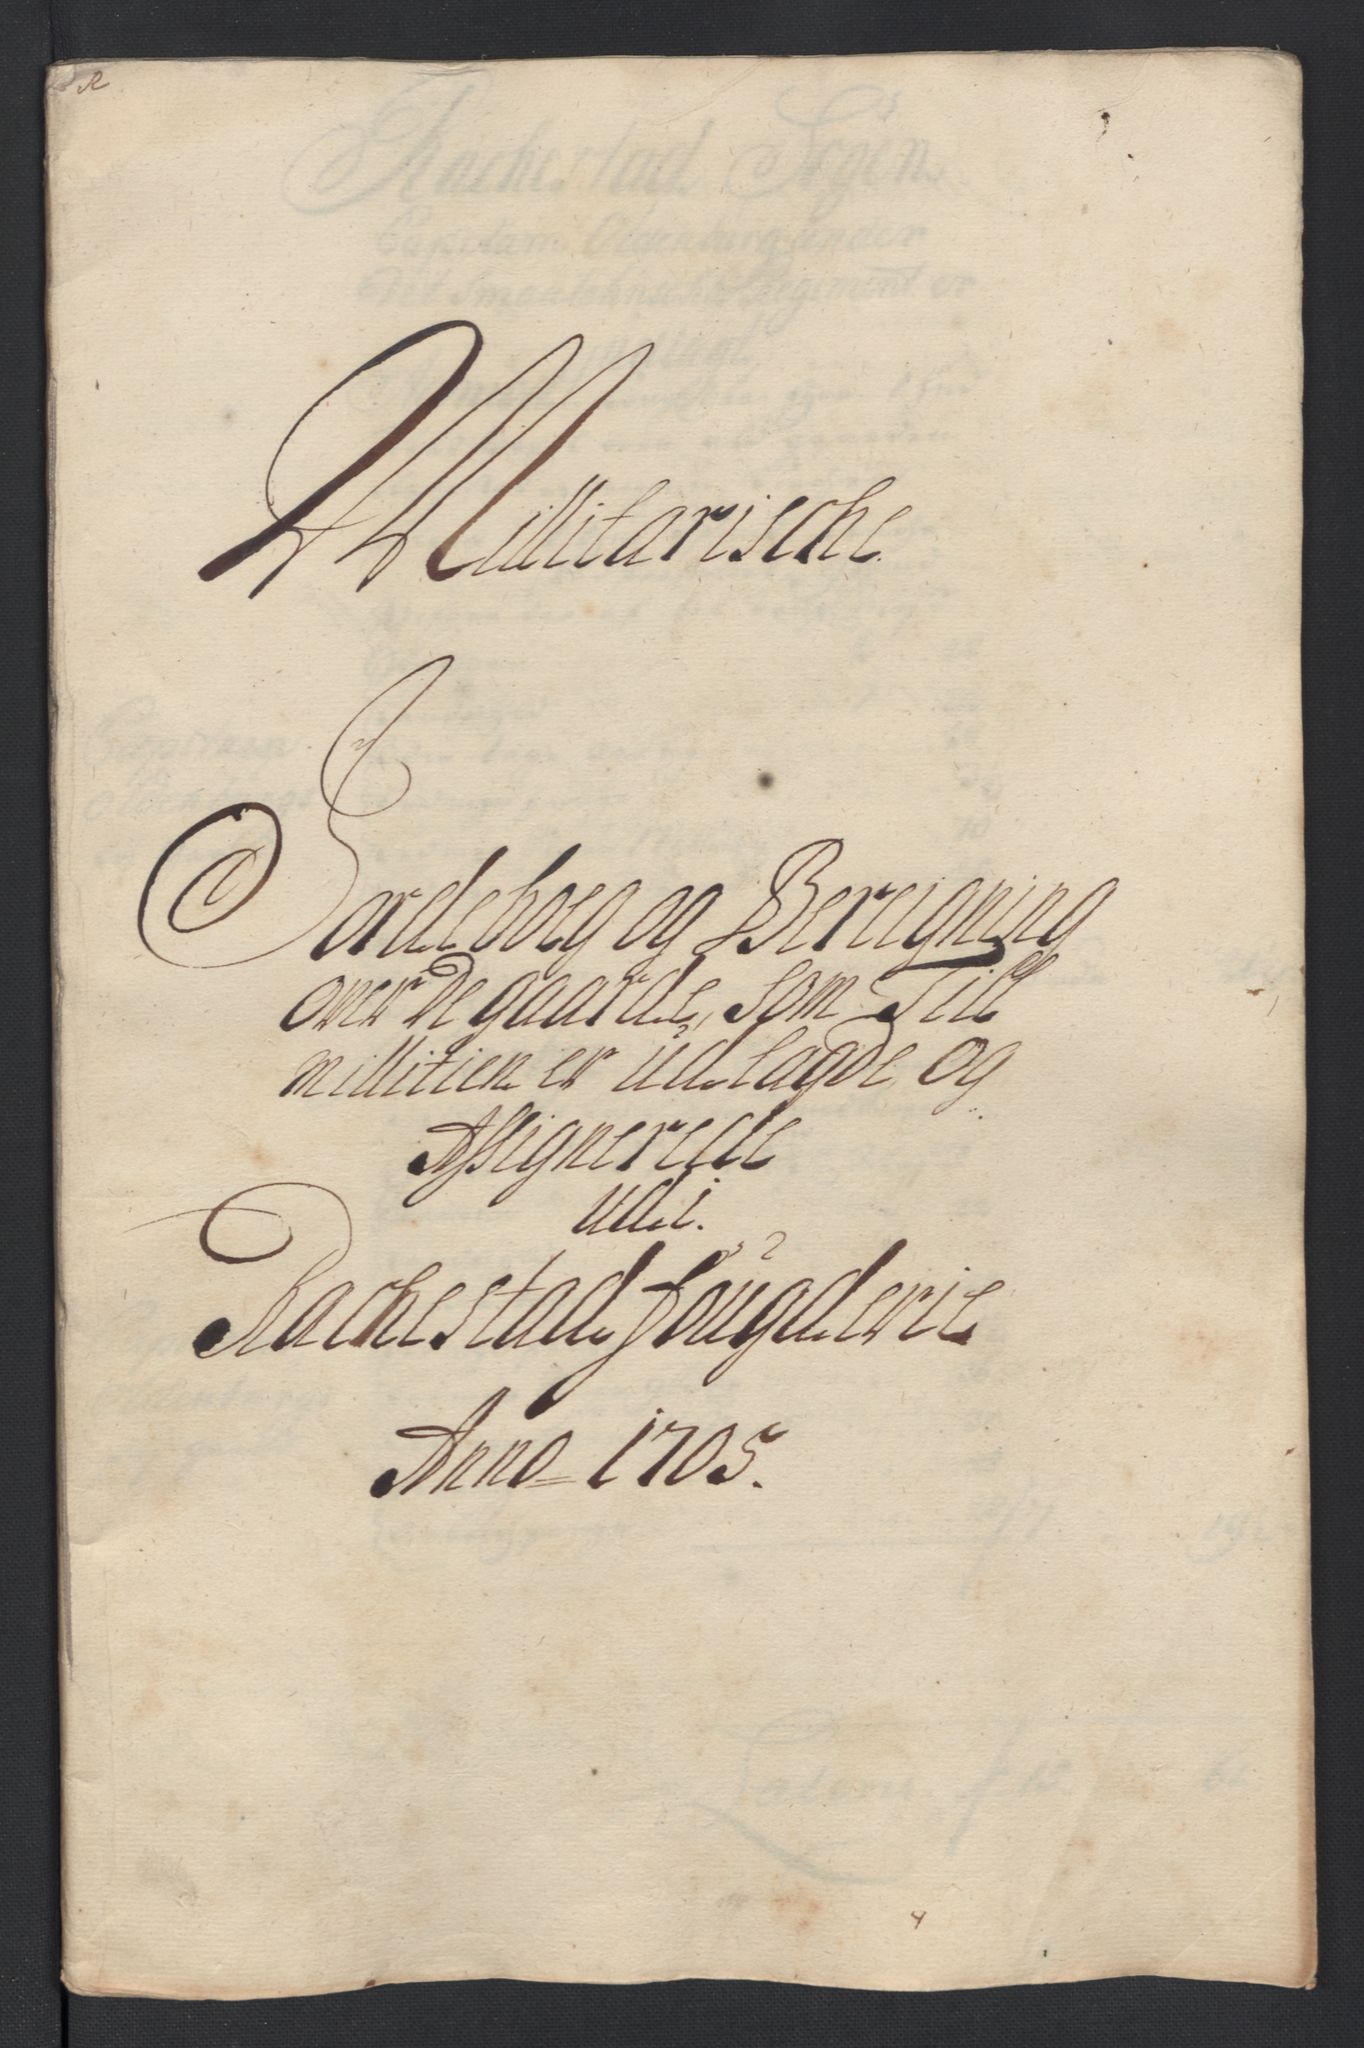 Millitarische
Jordeboeg og Bereigning
over De gaarde, som Till
millitien er udlagde og
Assignerede
udi.
Rachestad fougderie
Anno 1705.
4